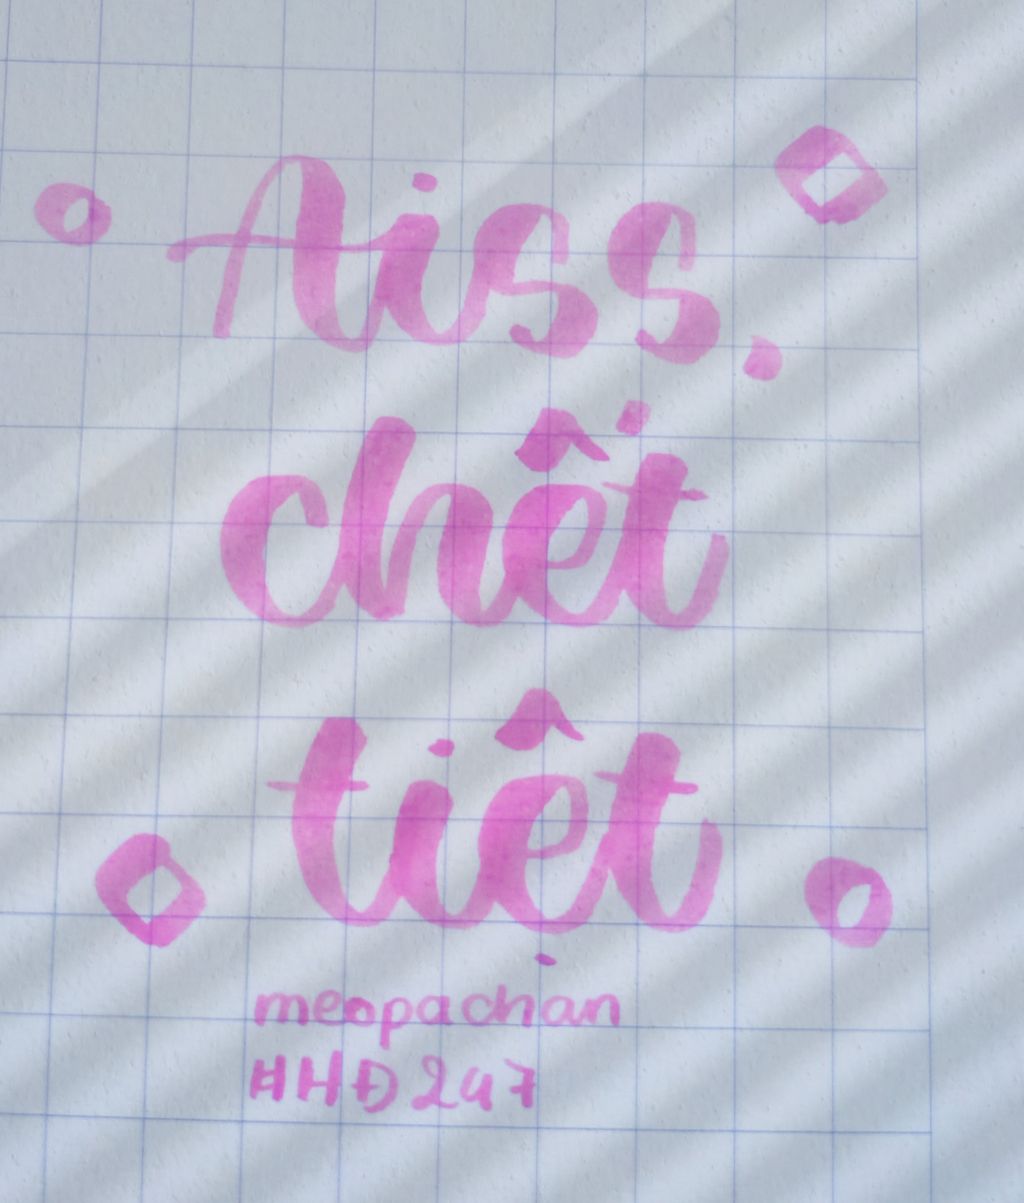 Aiss.
chết
tiệt
meopachan
HHĐ247